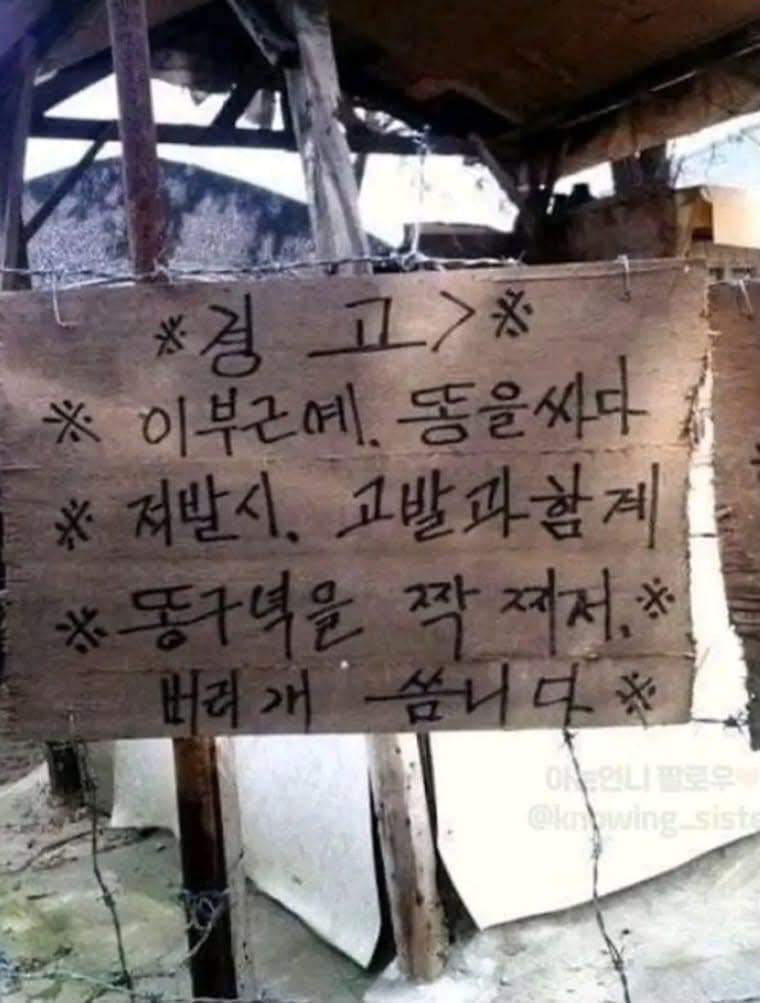 ※경 고>※
※ 이부근에. 똥을싸다
※ 적발시. 고발과함께
※똥구녁을 짝 찌저.※
버리개 씀니다※
아는언니 팔로우
@knowing_siste